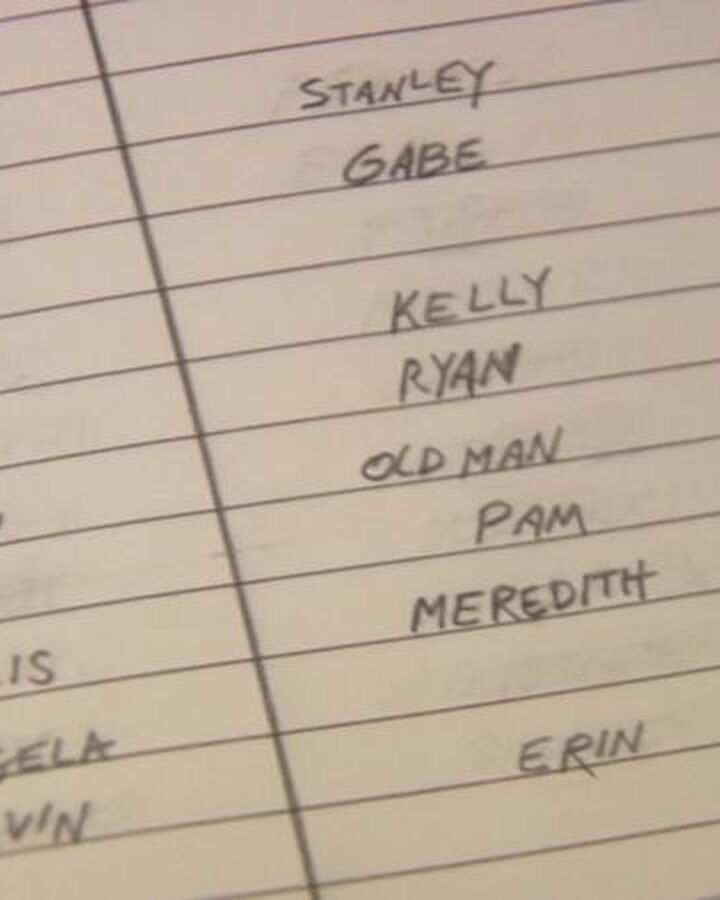 STANLEY
GABE
KELLY
RYAN
OLD MAN
PAM
MEREDITH
ERIN
IS
GELA
VIN